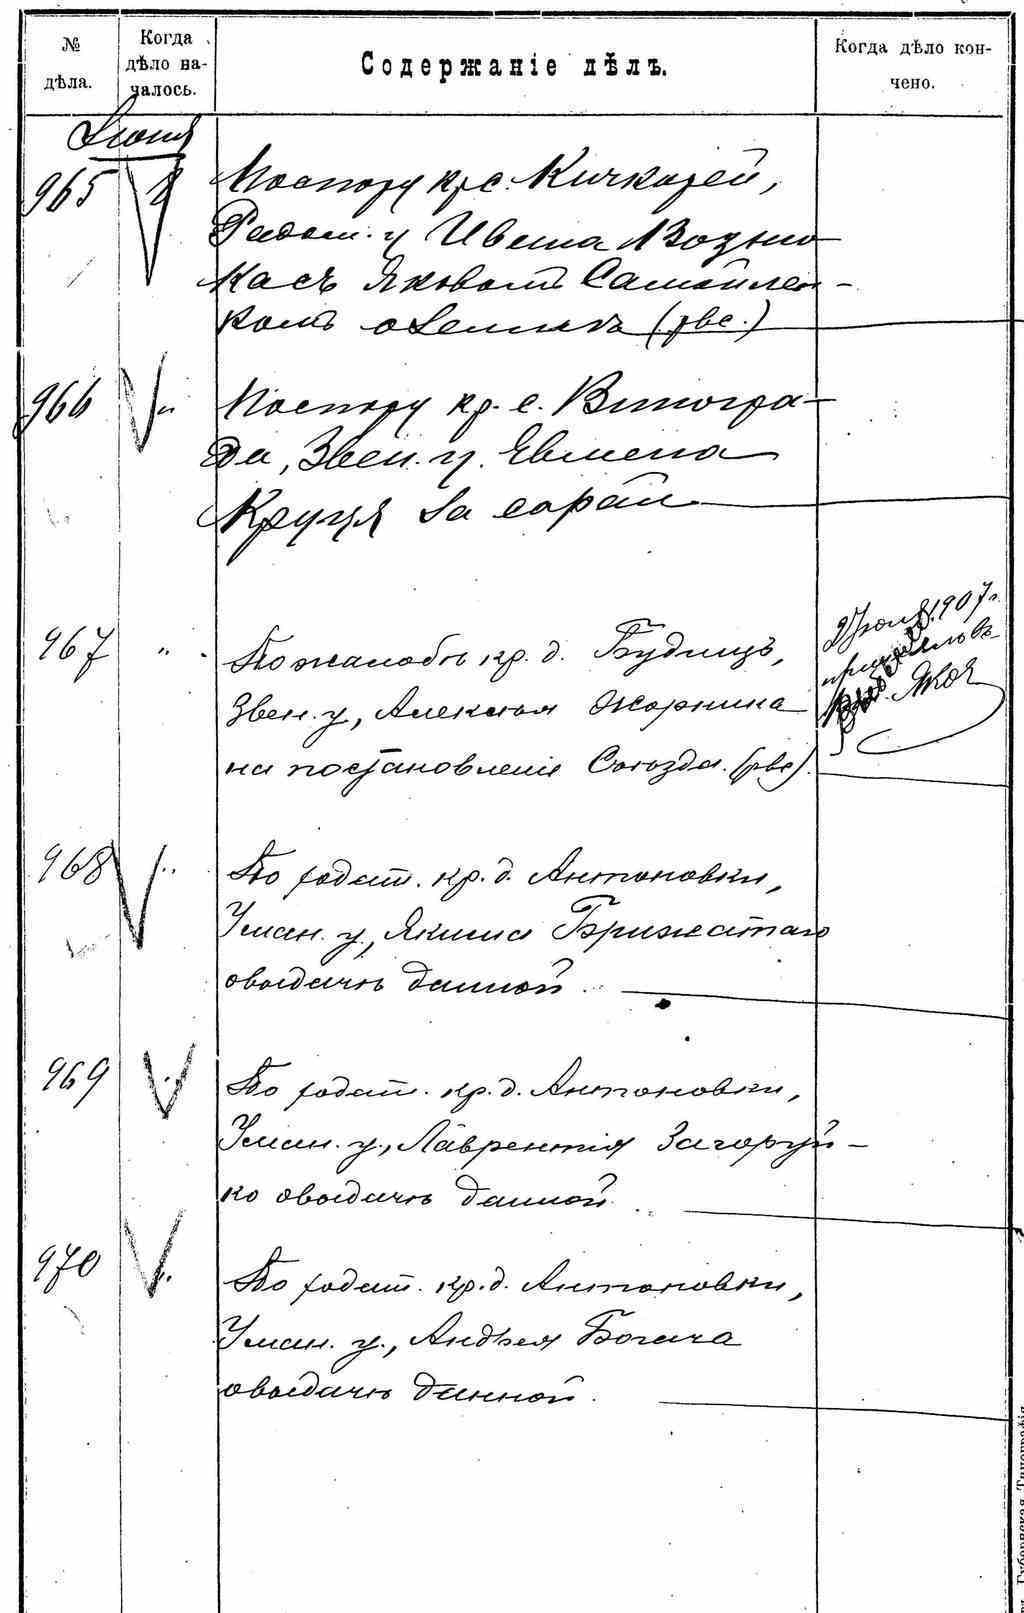 №
дѣла.
Когда
дѣло на-
чалось.
Содержаніе дѣлъ.
Когда дѣло кон-
чено.
Июня
965 8 По спору кр. с. Кичкарей,
Радом. у Ивана Возню-
ка съ Яковомъ Самойлен-
комъ о землѣ (рвс.)
966 " По спору кр. с. Виногра-
да, Звен. у. Евмена
Круця за сарай
967 " По жалобѣ кр. д. Будищъ,
Звен. у., Алексѣя Жорнина
на постановленіе Съѣзда. (рвс)
1907 г.
968 " По ходат. кр. д. Антоновки,
Уман. у., Якима Брижатаго
о выдачѣ данной
969 " По ходат. кр. д. Антоновки,
Уман. у., Лаврентія Загоруй-
ко о выдачѣ данной
970 " По ходат. кр. д. Антоновки,
Уман. у., Андрея Богача
о выдачѣ данной.
Губернская Типографія